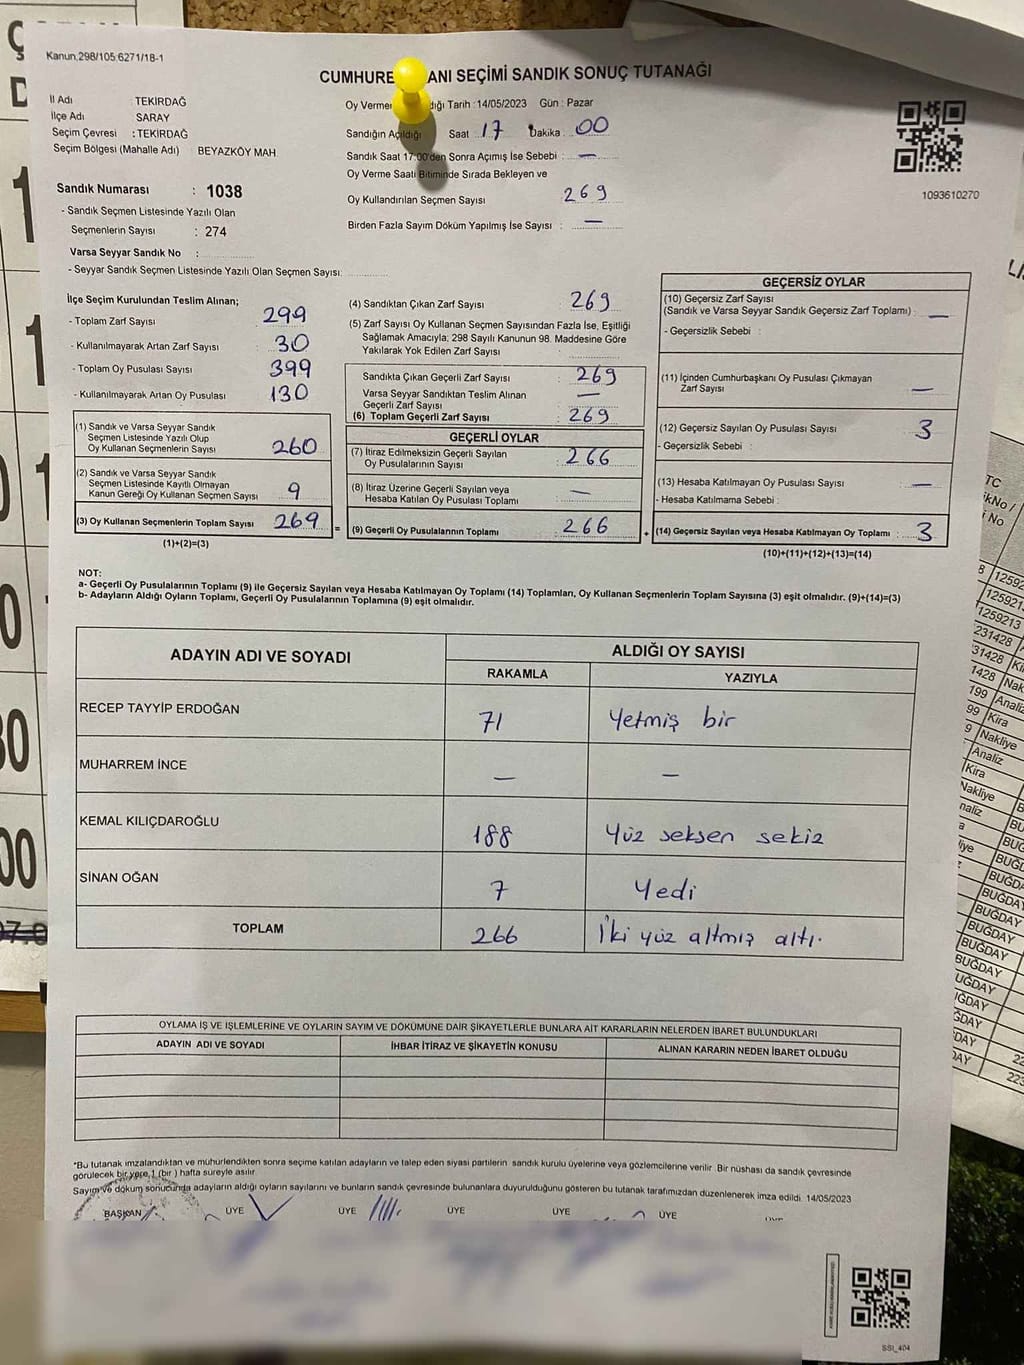 Kanun.298/105:6271/18-1
CUMHURE ANI SEÇİMİ SANDIK SONUÇ TUTANAĞI
İl Adı : TEKİRDAĞ
İlçe Adı SARAY
Seçim Çevresi : TEKİRDAĞ
Seçim Bölgesi (Mahalle Adı) BEYAZKÖY MAH.
Oy Verme dığı Tarih : 14/05/2023 Gün : Pazar
Sandığın Açıldığı Saat 17 Dakika 00
Sandık Saat 17:00'den Sonra Açımış İse Sebebi : —
Oy Verme Saati Bitiminde Sırada Bekleyen ve
Oy Kullandırılan Seçmen Sayısı 269
Birden Fazla Sayım Döküm Yapılmış İse Sayısı : —
1093610270
Sandık Numarası : 1038
- Sandık Seçmen Listesinde Yazılı Olan
Seçmenlerin Sayısı : 274
Varsa Seyyar Sandık No :
- Seyyar Sandık Seçmen Listesinde Yazılı Olan Seçmen Sayısı:
İlçe Seçim Kurulundan Teslim Alınan;
- Toplam Zarf Sayısı 299
- Kullanılmayarak Artan Zarf Sayısı : 30
- Toplam Oy Pusulası Sayısı 399
- Kullanılmayarak Artan Oy Pusulası 130
(1) Sandık ve Varsa Seyyar Sandık
Seçmen Listesinde Yazılı Olup
Oy Kullanan Seçmenlerin Sayısı 260
(2) Sandık ve Varsa Seyyar Sandık
Seçmen Listesinde Kayıtlı Olmayan
Kanun Gereği Oy Kullanan Seçmen Sayısı 9
(3) Oy Kullanan Seçmenlerin Toplam Sayısı 269 =
(1)+(2)=(3)
(4) Sandıktan Çıkan Zarf Sayısı 269
(5) Zarf Sayısı Oy Kullanan Seçmen Sayısından Fazla İse, Eşitliği
Sağlamak Amacıyla; 298 Sayılı Kanunun 98. Maddesine Göre
Yakılarak Yok Edilen Zarf Sayısı
Sandıkta Çıkan Geçerli Zarf Sayısı : 269
Varsa Seyyar Sandıktan Teslim Alınan
Geçerli Zarf Sayısı —
(6) Toplam Geçerli Zarf Sayısı : 269
GEÇERLİ OYLAR
(7) İtiraz Edilmeksizin Geçerli Sayılan
Oy Pusulalarının Sayısı : 266
(8) İtiraz Üzerine Geçerli Sayılan veya
Hesaba Katılan Oy Pusulası Toplamı —
(9) Geçerli Oy Pusulalarının Toplamı : 266 +
GEÇERSİZ OYLAR
(10) Geçersiz Zarf Sayısı
(Sandık ve Varsa Seyyar Sandık Geçersiz Zarf Toplamı) : —
- Geçersizlik Sebebi :
(11) İçinden Cumhurbaşkanı Oy Pusulası Çıkmayan
Zarf Sayısı —
(12) Geçersiz Sayılan Oy Pusulası Sayısı 3
- Geçersizlik Sebebi :
(13) Hesaba Katılmayan Oy Pusulası Sayısı : —
- Hesaba Katılmama Sebebi :
(14) Geçersiz Sayılan veya Hesaba Katılmayan Oy Toplamı : 3
(10)+(11)+(12)+(13)=(14)
NOT:
a- Geçerli Oy Pusulalarının Toplamı (9) ile Geçersiz Sayılan veya Hesaba Katılmayan Oy Toplamı (14) Toplamları, Oy Kullanan Seçmenlerin Toplam Sayısına (3) eşit olmalıdır. (9)+(14)=(3)
b- Adayların Aldığı Oyların Toplamı, Geçerli Oy Pusulalarının Toplamına (9) eşit olmalıdır.
ADAYIN ADI VE SOYADI ALDIĞI OY SAYISI
RAKAMLA YAZIYLA
RECEP TAYYİP ERDOĞAN 71 Yetmiş bir
MUHARREM İNCE — —
KEMAL KILIÇDAROĞLU 188 Yüz seksen sekiz
SİNAN OĞAN 7 Yedi
TOPLAM 266 İki yüz altmış altı.
OYLAMA İŞ VE İŞLEMLERİNE VE OYLARIN SAYIM VE DÖKÜMÜNE DAİR ŞİKAYETLERLE BUNLARA AİT KARARLARIN NELERDEN İBARET BULUNDUKLARI
ADAYIN ADI VE SOYADI İHBAR İTİRAZ VE ŞİKAYETİN KONUSU ALINAN KARARIN NEDEN İBARET OLDUĞU
*Bu tutanak imzalandıktan ve mühürlendikten sonra seçime katılan adayların ve talep eden siyasi partilerin sandık kurulu üyelerine veya gözlemcilerine verilir. Bir nüshası da sandık çevresinde
görülecek bir yere 1 (bir ) hafta süreyle asılır.
Sayım ve döküm sonucunda adayların aldığı oyların sayılarını ve bunların sandık çevresinde bulunanlara duyurulduğunu gösteren bu tutanak tarafımızdan düzenlenerek imza edildi. 14/05/2023
BAŞKAN ÜYE ÜYE ÜYE ÜYE ÜYE
SSI_404